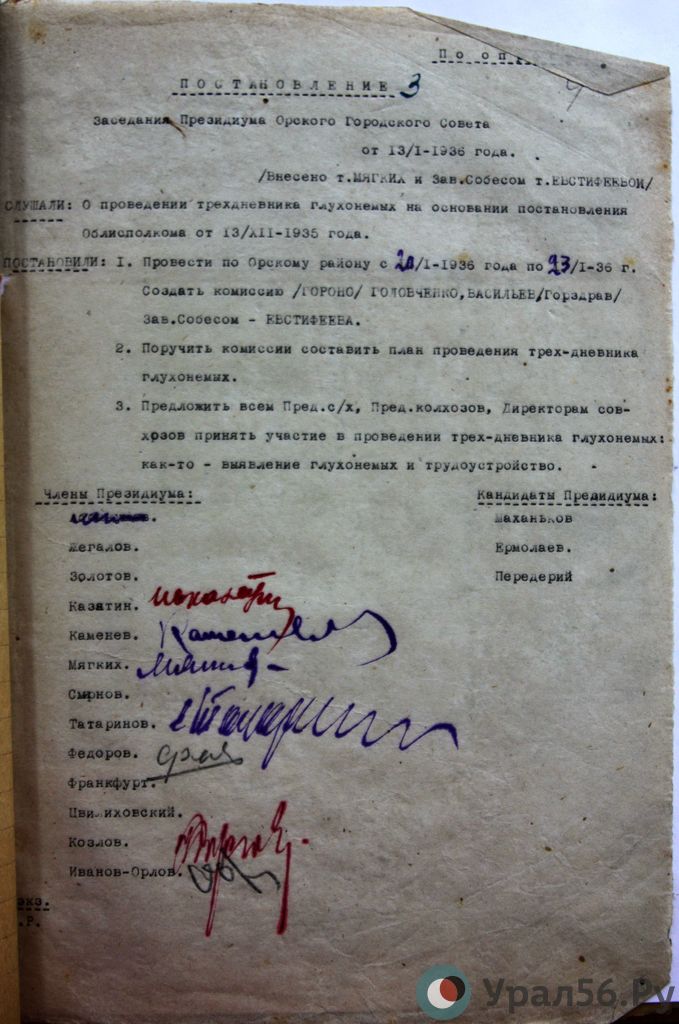 По оп
ПОСТАНОВЛЕНИЕ 3
Заседания Президиума Орского Городского Совета
от 13/I-1936 года.
/Внесено т.МЯГКИХ и Зав.Собесом т.ЕВСТИФЕЕВОЙ/
СЛУШАЛИ: О проведении трехдневника глухонемых на основании постановления
Облисполкома от 13/XII-1935 года.
ПОСТАНОВИЛИ: 1. Провести по Орскому району с 20/I-1936 года по 23/I-36 г.
Создать комиссию /ГОРОНО/ ГОЛОВЧЕНКО, ВАСИЛЬЕВ/Горздрав/
Зав.Собесом - ЕВСТИФЕЕВА.
2. Поручить комиссии составить план проведения трех-дневника
глухонемых.
3. Предложить всем Пред.с/х, Пред.колхозов, Директорам сов-
хозов принять участие в проведении трех-дневника глухонемых:
как-то - выявление глухонемых и трудоустройство.
Члены Президиума: Кандидаты Президиума:
Маханьков
Жегалов. Ермолаев.
Золотов. Передерий
Казатин.
Каменев. Каменев
Мягких. Мягких
Смирнов.
Татаринов. Татарин
Федоров.
Франкфурт.
Цвилиховский.
Козлов.
Иванов-Орлов.
экз.
.Р.
Урал56.Ру